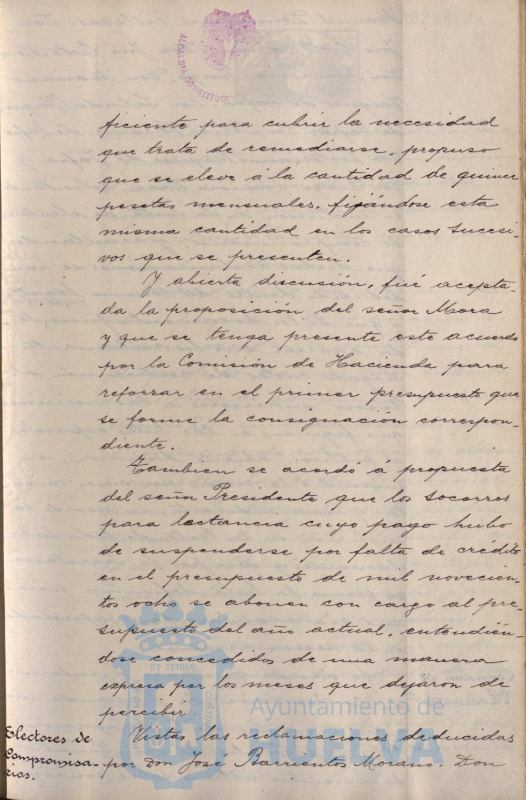 ALCALDIA CONSTITUCIONAL
ficiente para cubrir la necesidad
que trata de remediarse, propuso
que se eleve á la cantidad de quince
pesetas mensuales, fijándose esta
misma cantidad en los casos sucesi-
vos que se presenten.
Y abierta discusión, fué acepta-
da la proposición del señor Mora
y que se tenga presente este acuerdo
por la Comisión de Hacienda para
reforzar en el primer presupuesto que
se forme la consignación correspon-
diente.
Tambien se acordó á propuesta
del señor Presidente que los socorros
para lactancia cuyo pago hubo
de suspenderse por falta de crédito
en el presupuesto de mil novecien-
tos ocho se abonen con cargo al pre-
supuesto del año actual, entendién-
dose concedidos de una manera
expresa por los meses que dejaron de
percibir.
Electores de
Compromisa-
rios.
Vistas las reclamaciones deducidas
por Don José Barrientos Morano. Don
Ayuntamiento de
HUELVA